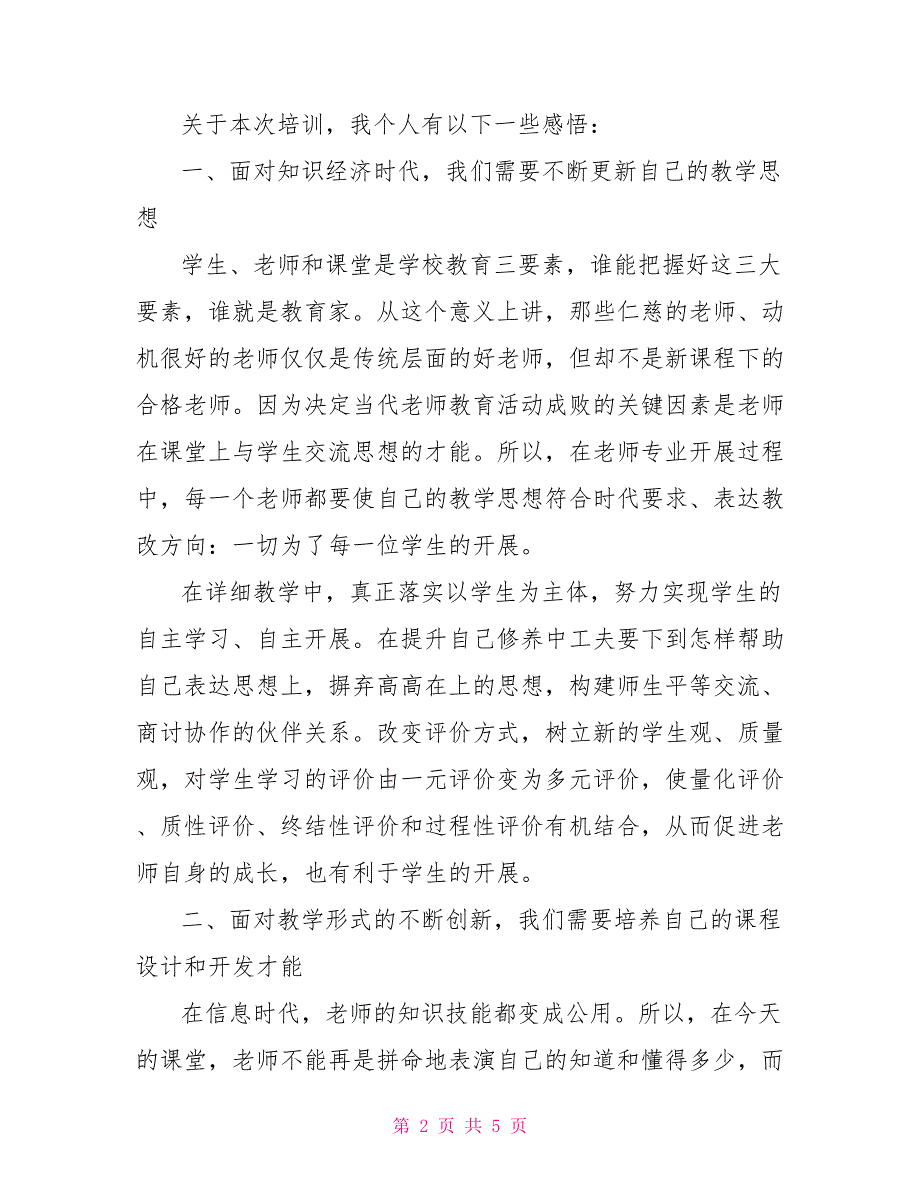 关于本次培训，我个人有以下一些感悟：
一、面对知识经济时代，我们需要不断更新自己的教学思
想
学生、老师和课堂是学校教育三要素，谁能把握好这三大
要素，谁就是教育家。从这个意义上讲，那些仁慈的老师、动
机很好的老师仅仅是传统层面的好老师，但却不是新课程下的
合格老师。因为决定当代老师教育活动成败的关键因素是老师
在课堂上与学生交流思想的才能。所以，在老师专业开展过程
中，每一个老师都要使自己的教学思想符合时代要求、表达教
改方向：一切为了每一位学生的开展。
在详细教学中，真正落实以学生为主体，努力实现学生的
自主学习、自主开展。在提升自己修养中工夫要下到怎样帮助
自己表达思想上，摒弃高高在上的思想，构建师生平等交流、
商讨协作的伙伴关系。改变评价方式，树立新的学生观、质量
观，对学生学习的评价由一元评价变为多元评价，使量化评价
、质性评价、终结性评价和过程性评价有机结合，从而促进老
师自身的成长，也有利于学生的开展。
二、面对教学形式的不断创新，我们需要培养自己的课程
设计和开发才能
在信息时代，老师的知识技能都变成公用。所以，在今天
的课堂，老师不能再是拼命地表演自己的知道和懂得多少，而
第 2 页 共 5 页